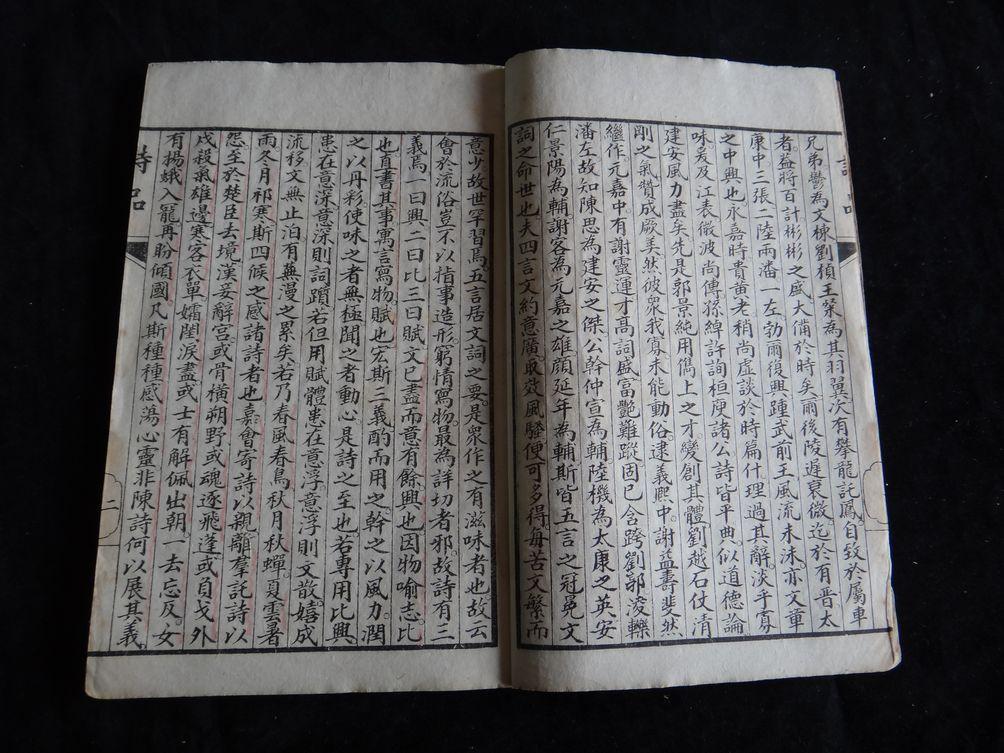 詩品
兄弟鬱為文棟劉楨王粲為其羽翼次有攀龍託鳳自致於屬車
者蓋將百計彬彬之盛大備於時矣爾後陵遲衰微迄於有晉太
康中三張二陸兩潘一左勃爾復興踵武前王風流未沬亦文章
之中興也永嘉時貴黄老稍尚虛談於時篇什理過其辭淡乎寡
味爰及江表微波尚傳孫綽許詢桓庾諸公詩皆平典似道德論
建安風力盡矣先是郭景純用儁上之才變創其體劉越石仗清
剛之氣贊成厥美然彼衆我寡未能動俗逮義熙中謝益壽斐然
繼作元嘉中有謝靈運才高詞盛富艷難蹤固已含跨劉郭淩轢
潘左故知陳思為建安之傑公幹仲宣為輔陸機為太康之英安
仁景陽為輔謝客為元嘉之雄顏延年為輔斯皆五言之冠冕文
詞之命世也夫四言文約意廣取效風騷便可多得每苦文繁而
意少故世罕習焉五言居文詞之要是衆作之有滋味者也故云
會於流俗豈不以指事造形窮情寫物最為詳切者邪故詩有三
義焉一曰興二曰比三曰賦文已盡而意有餘興也因物喻志比
也直書其事寓言寫物賦也宏斯三義酌而用之幹之以風力潤
之以丹彩使味之者無極聞之者動心是詩之至也若專用比興
患在意深意深則詞躓若但用賦體患在意浮意浮則文散嬉成
流移文無止泊有蕪漫之累矣若乃春風春鳥秋月秋蟬夏雲暑
雨冬月祁寒斯四候之感諸詩者也嘉會寄詩以親離羣託詩以
怨至於楚臣去境漢妾辭宮或骨橫朔野或魂逐飛蓬或負戈外
戍殺氣雄邊塞客衣單孀閨淚盡或士有解佩出朝一去忘反女
有揚蛾入寵再盼傾國凡斯種種感蕩心靈非陳詩何以展其義
詩品
二